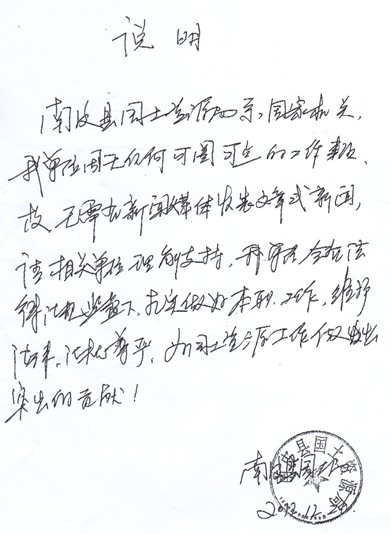 说明
南皮县国土资源局系国家机关,
我单位因无任何可圈可点的工作事项,
故无需在新闻媒体发表文章或新闻,
请相关单位理解支持,我单位会在法
律法规监督下,扎实做好本职工作,维护
法律、法规尊严,为国土资源工作做出
突出的贡献!
南皮县国土
县国土资源局
2012.12.